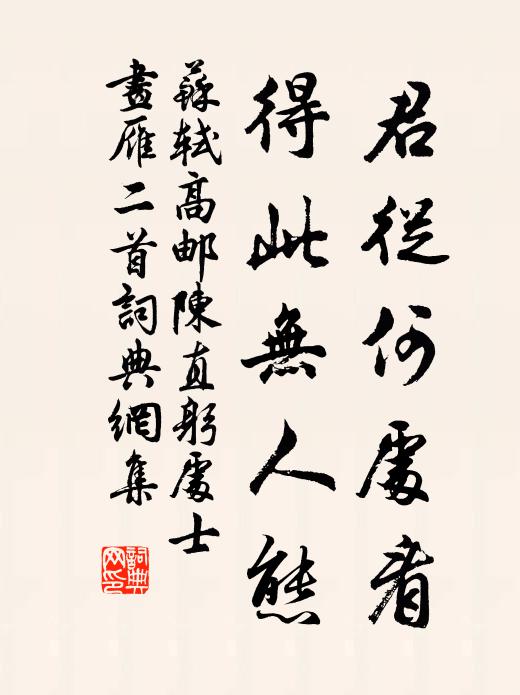 君從何處看
得此無人態
蘇軾高邮陳直躬處士
畫雁二首詞典網集
詞典
网印